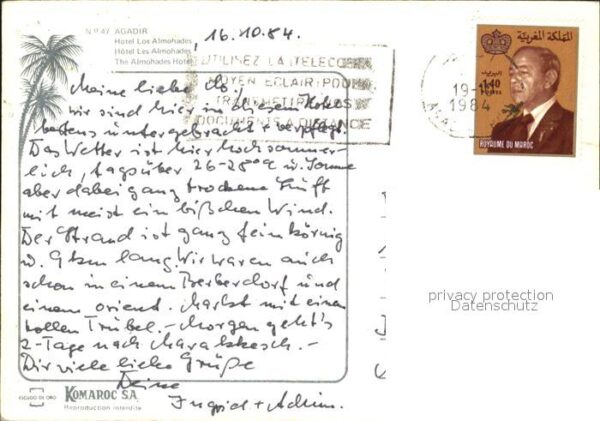 Nº 47 AGADIR
Hotel Los Almohades
Hôtel Les Almohades
The Almohades Hotel
16.10.84.
UTILISEZ LA TELECOPIE
MOYEN ECLAIR POUR
TRANSMETTRE LES
DOCUMENTS A DISTANCE
المملكة المغربية
البريد
1,40
POSTES
ROYAUME DU MAROC
19-10
1984
Meine liebe Lo!
wir sind hier in obigem Hotel
bestens untergebracht + verpflegt.
Das Wetter ist hier hochsommer-
lich, tagsüber 26-28°C u. Sonne
aber dabei ganz trockene Luft
mit meist ein bißchen Wind.
Der Strand ist ganz feinkörnig
u. 9 km lang. Wir waren auch
schon in einem Berberdorf und
einem orient. Markt mit einem
tollen Trubel. – Morgen geht's
2-Tage nach Marakkesch. –
Dir viele liebe Grüße
Deine
Ingrid + Achim.
privacy protection
Datenschutz
ESCUDO DE ORO
KOMAROC S.A.
Reproduction interdite